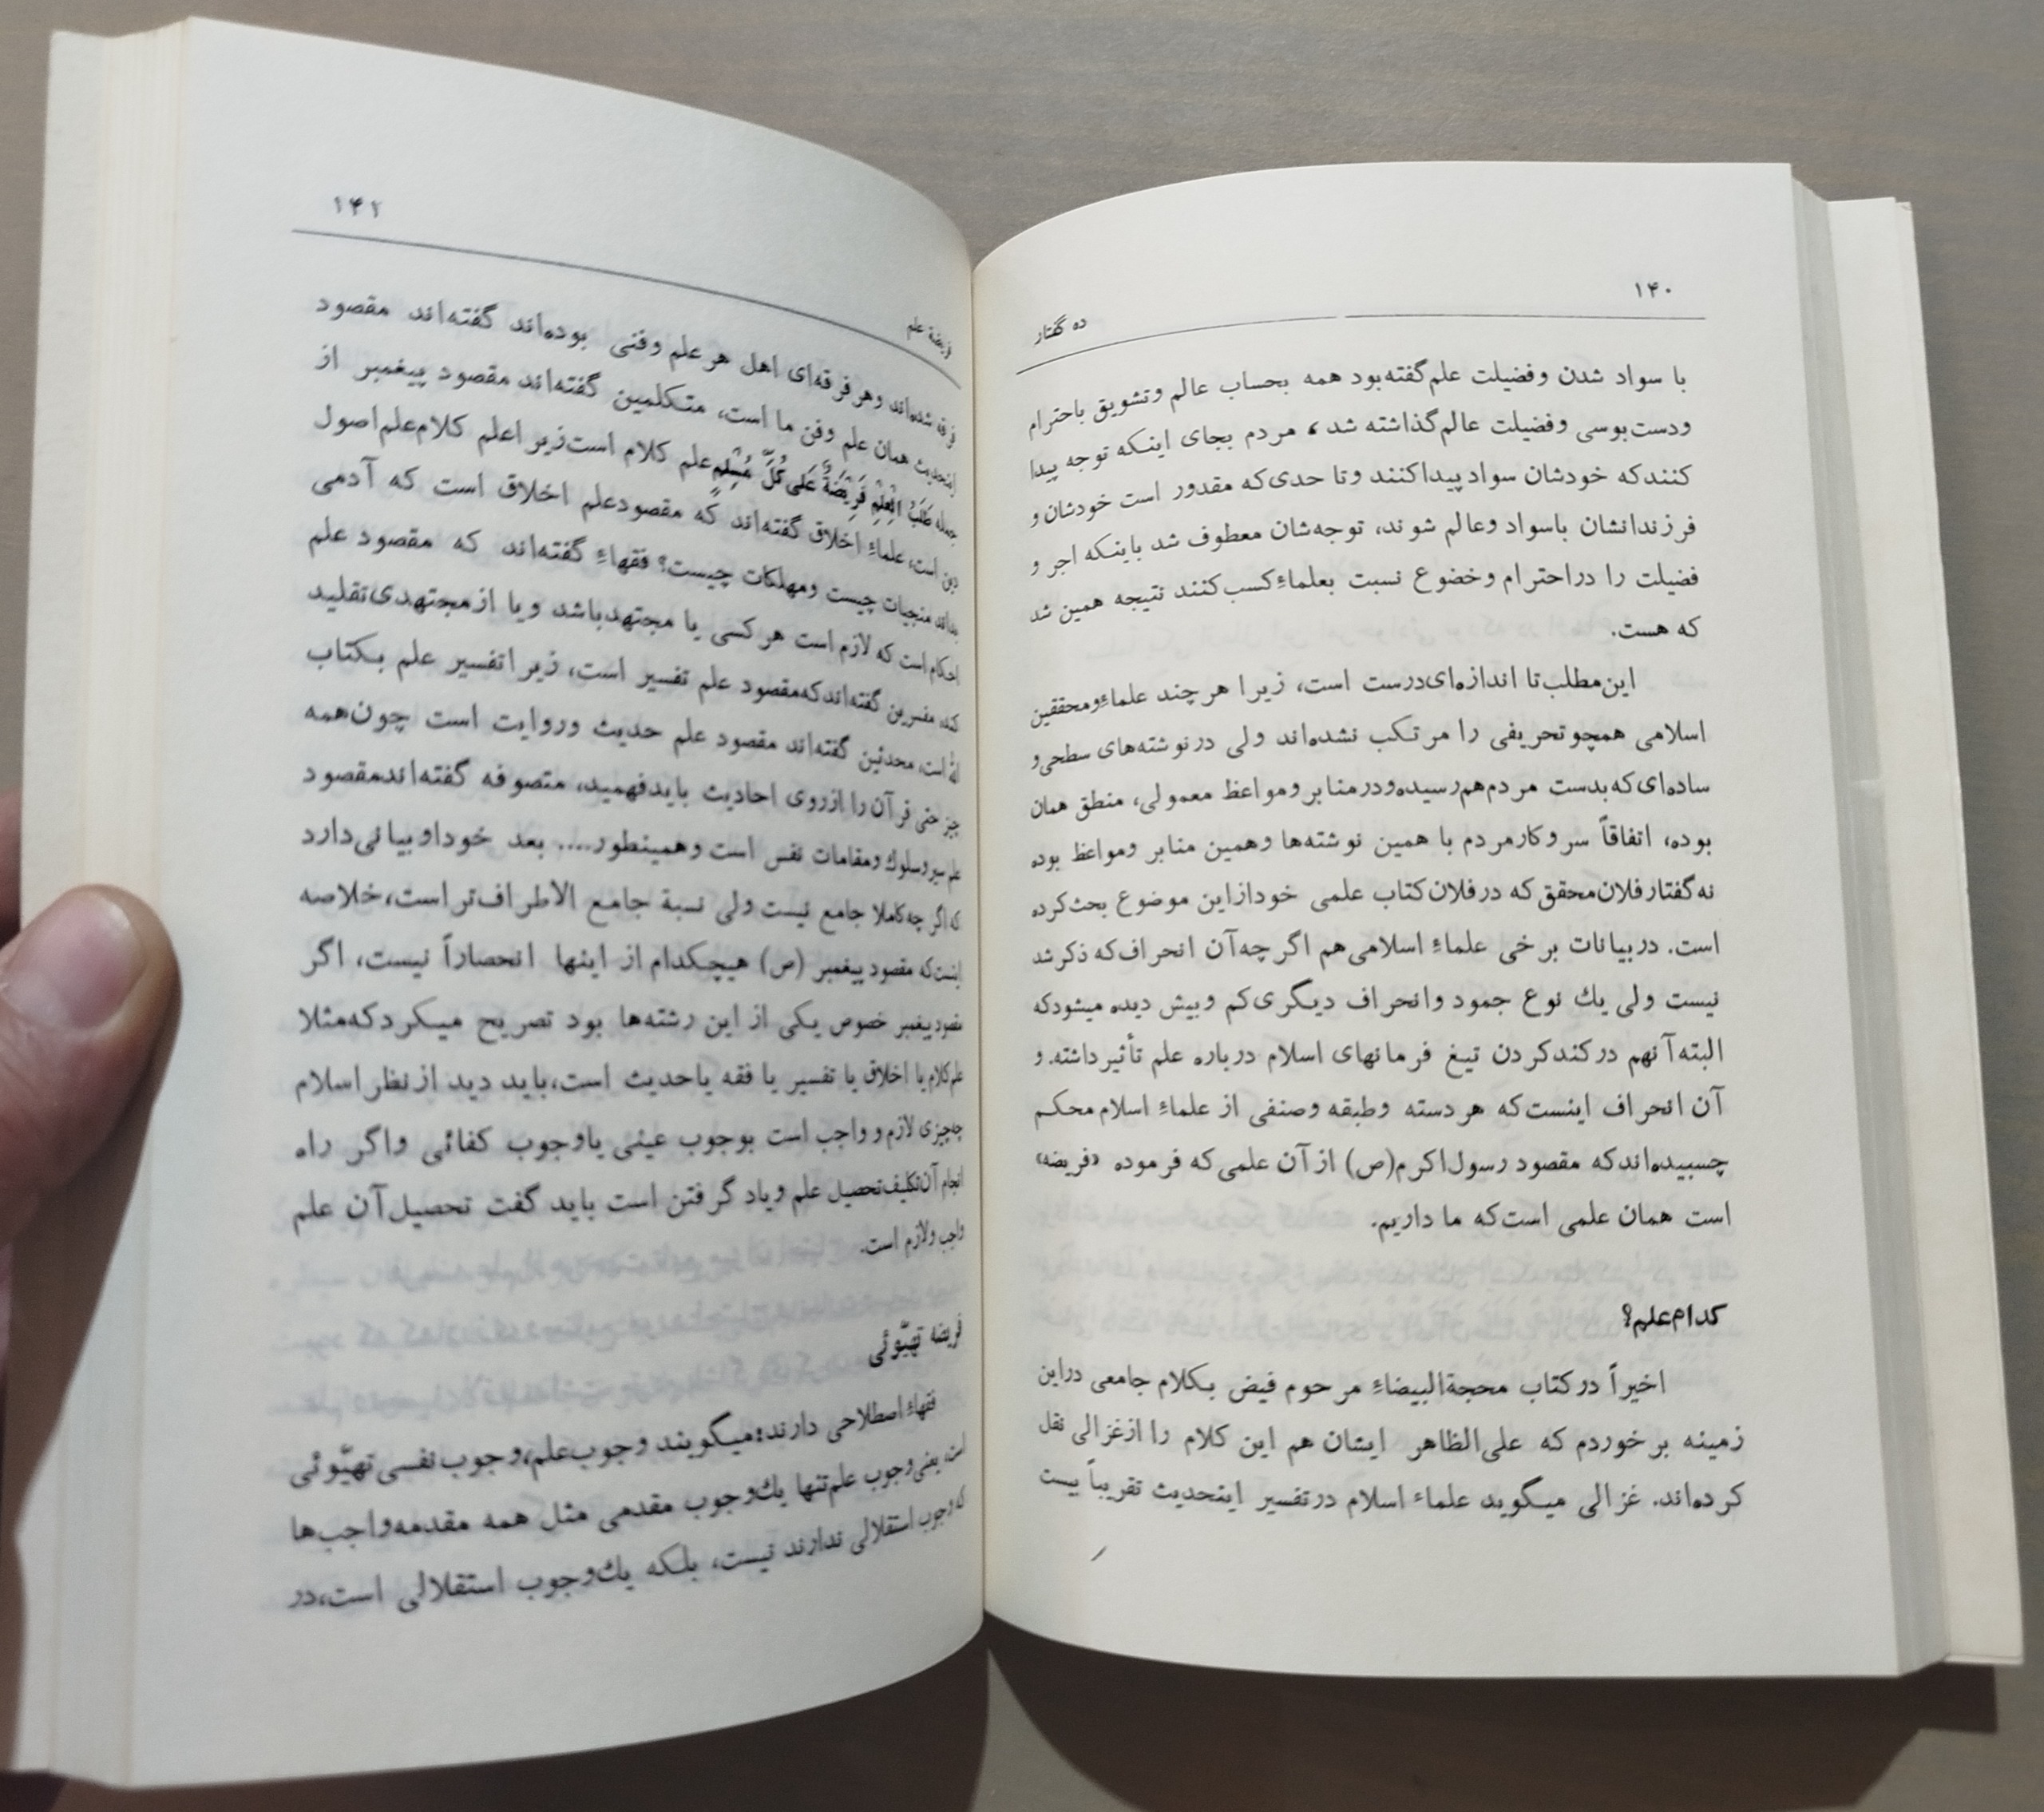 ۱۴۰
ده گفتار
با سواد شدن وفضیلت علم گفته بود همه بحساب عالم وتشویق باحترام
ودست بوسی وفضیلت عالم گذاشته شد، مردم بجای اینکه توجه پیدا
کنند که خودشان سواد پیدا کنند وتا حدی که مقدور است خودشان و
فرزندانشان باسواد وعالم شوند، توجه‌شان معطوف شد باینکه اجر و
فضیلت را در احترام وخضوع نسبت بعلماءِ کسب کنند نتیجه همین شد
که هست.
این مطلب تا اندازه‌ای درست است، زیرا هرچند علماءِ ومحققین
اسلامی همچو تحریفی را مرتکب نشده‌اند ولی در نوشته‌های سطحی و
ساده‌ای که بدست مردم هم رسیده ودر منابر ومواعظ معمولی، منطق همان
بوده، اتفاقاً سر وکار مردم با همین نوشته‌ها وهمین منابر ومواعظ بوده
نه گفتار فلان محقق که در فلان کتاب علمی خود از این موضوع بحث کرده
است. در بیانات برخی علماءِ اسلامی هم اگر چه آن انحراف که ذکر شد
نیست ولی یك نوع جمود وانحراف دیگری کم وبیش دیده میشود که
البته آنهم در کند کردن تیغ فرمانهای اسلام درباره علم تأثیر داشته. و
آن انحراف اینست که هر دسته وطبقه وصنفی از علماءِ اسلام محکم
چسبیده‌اند که مقصود رسول اکرم(ص) از آن علمی که فرموده «فریضه»
است همان علمی است که ما داریم.
کدام علم؟
اخیراً در کتاب محجةالبیضاءِ مرحوم فیض بکلام جامعی در این
زمینه برخوردم که علی‌الظاهر ایشان هم این کلام را از غزالی نقل
کرده‌اند. غزالی میگوید علماء اسلام در تفسیر اینحدیث تقریباً بیست
۱۴۱
فریضهٔ علم
فرقه شده‌اند وهر فرقه‌ای اهل هر علم وفنی بوده‌اند گفته‌اند مقصود
اینحدیث همان علم وفن ما است، متکلمین گفته‌اند مقصود پیغمبر از
جمله طَلَبُ الْعِلْمِ فَرِیْضَةٌ عَلَی کُلِّ مُسْلِمٍ علم کلام است زیرا علم کلام علم اصول
دین است، علماءِ اخلاق گفته‌اند که مقصود علم اخلاق است که آدمی
بداند منجیات چیست ومهلکات چیست؟ فقهاءِ گفته‌اند که مقصود علم
احکام است که لازم است هر کسی یا مجتهد باشد ویا از مجتهدی تقلید
کند، مفسرین گفته‌اند که مقصود علم تفسیر است، زیرا تفسیر علم بکتاب
الله است، محدثین گفته‌اند مقصود علم حدیث وروایت است چون همه
چیز حتی قرآن را از روی احادیث باید فهمید، متصوفه گفته‌اند مقصود
علم سیر وسلوك ومقامات نفس است وهمینطور.... بعد خود او بیانی دارد
که اگر چه کاملا جامع نیست ولی نسبة جامع الاطراف‌تر است، خلاصه
اینست که مقصود پیغمبر (ص) هیچکدام از اینها انحصاراً نیست، اگر
مقصود پیغمبر خصوص یکی از این رشته‌ها بود تصریح میکرد که مثلا
علم کلام یا اخلاق یا تفسیر یا فقه یا حدیث است، باید دید از نظر اسلام
چه چیزی لازم و واجب است بوجوب عینی یا وجوب کفائی واگر راه
انجام آن تکلیف تحصیل علم ویاد گرفتن است باید گفت تحصیل آن علم
واجب ولازم است.
فریضه تهیّوئی
فقهاءِ اصطلاحی دارند: میگویند وجوب علم، وجوب نفسی تهیّوئی
است، یعنی وجوب علم تنها یك وجوب مقدمی مثل همه مقدمه واجب‌ها
که وجوب استقلالی ندارند نیست، بلکه یك وجوب استقلالی است، در